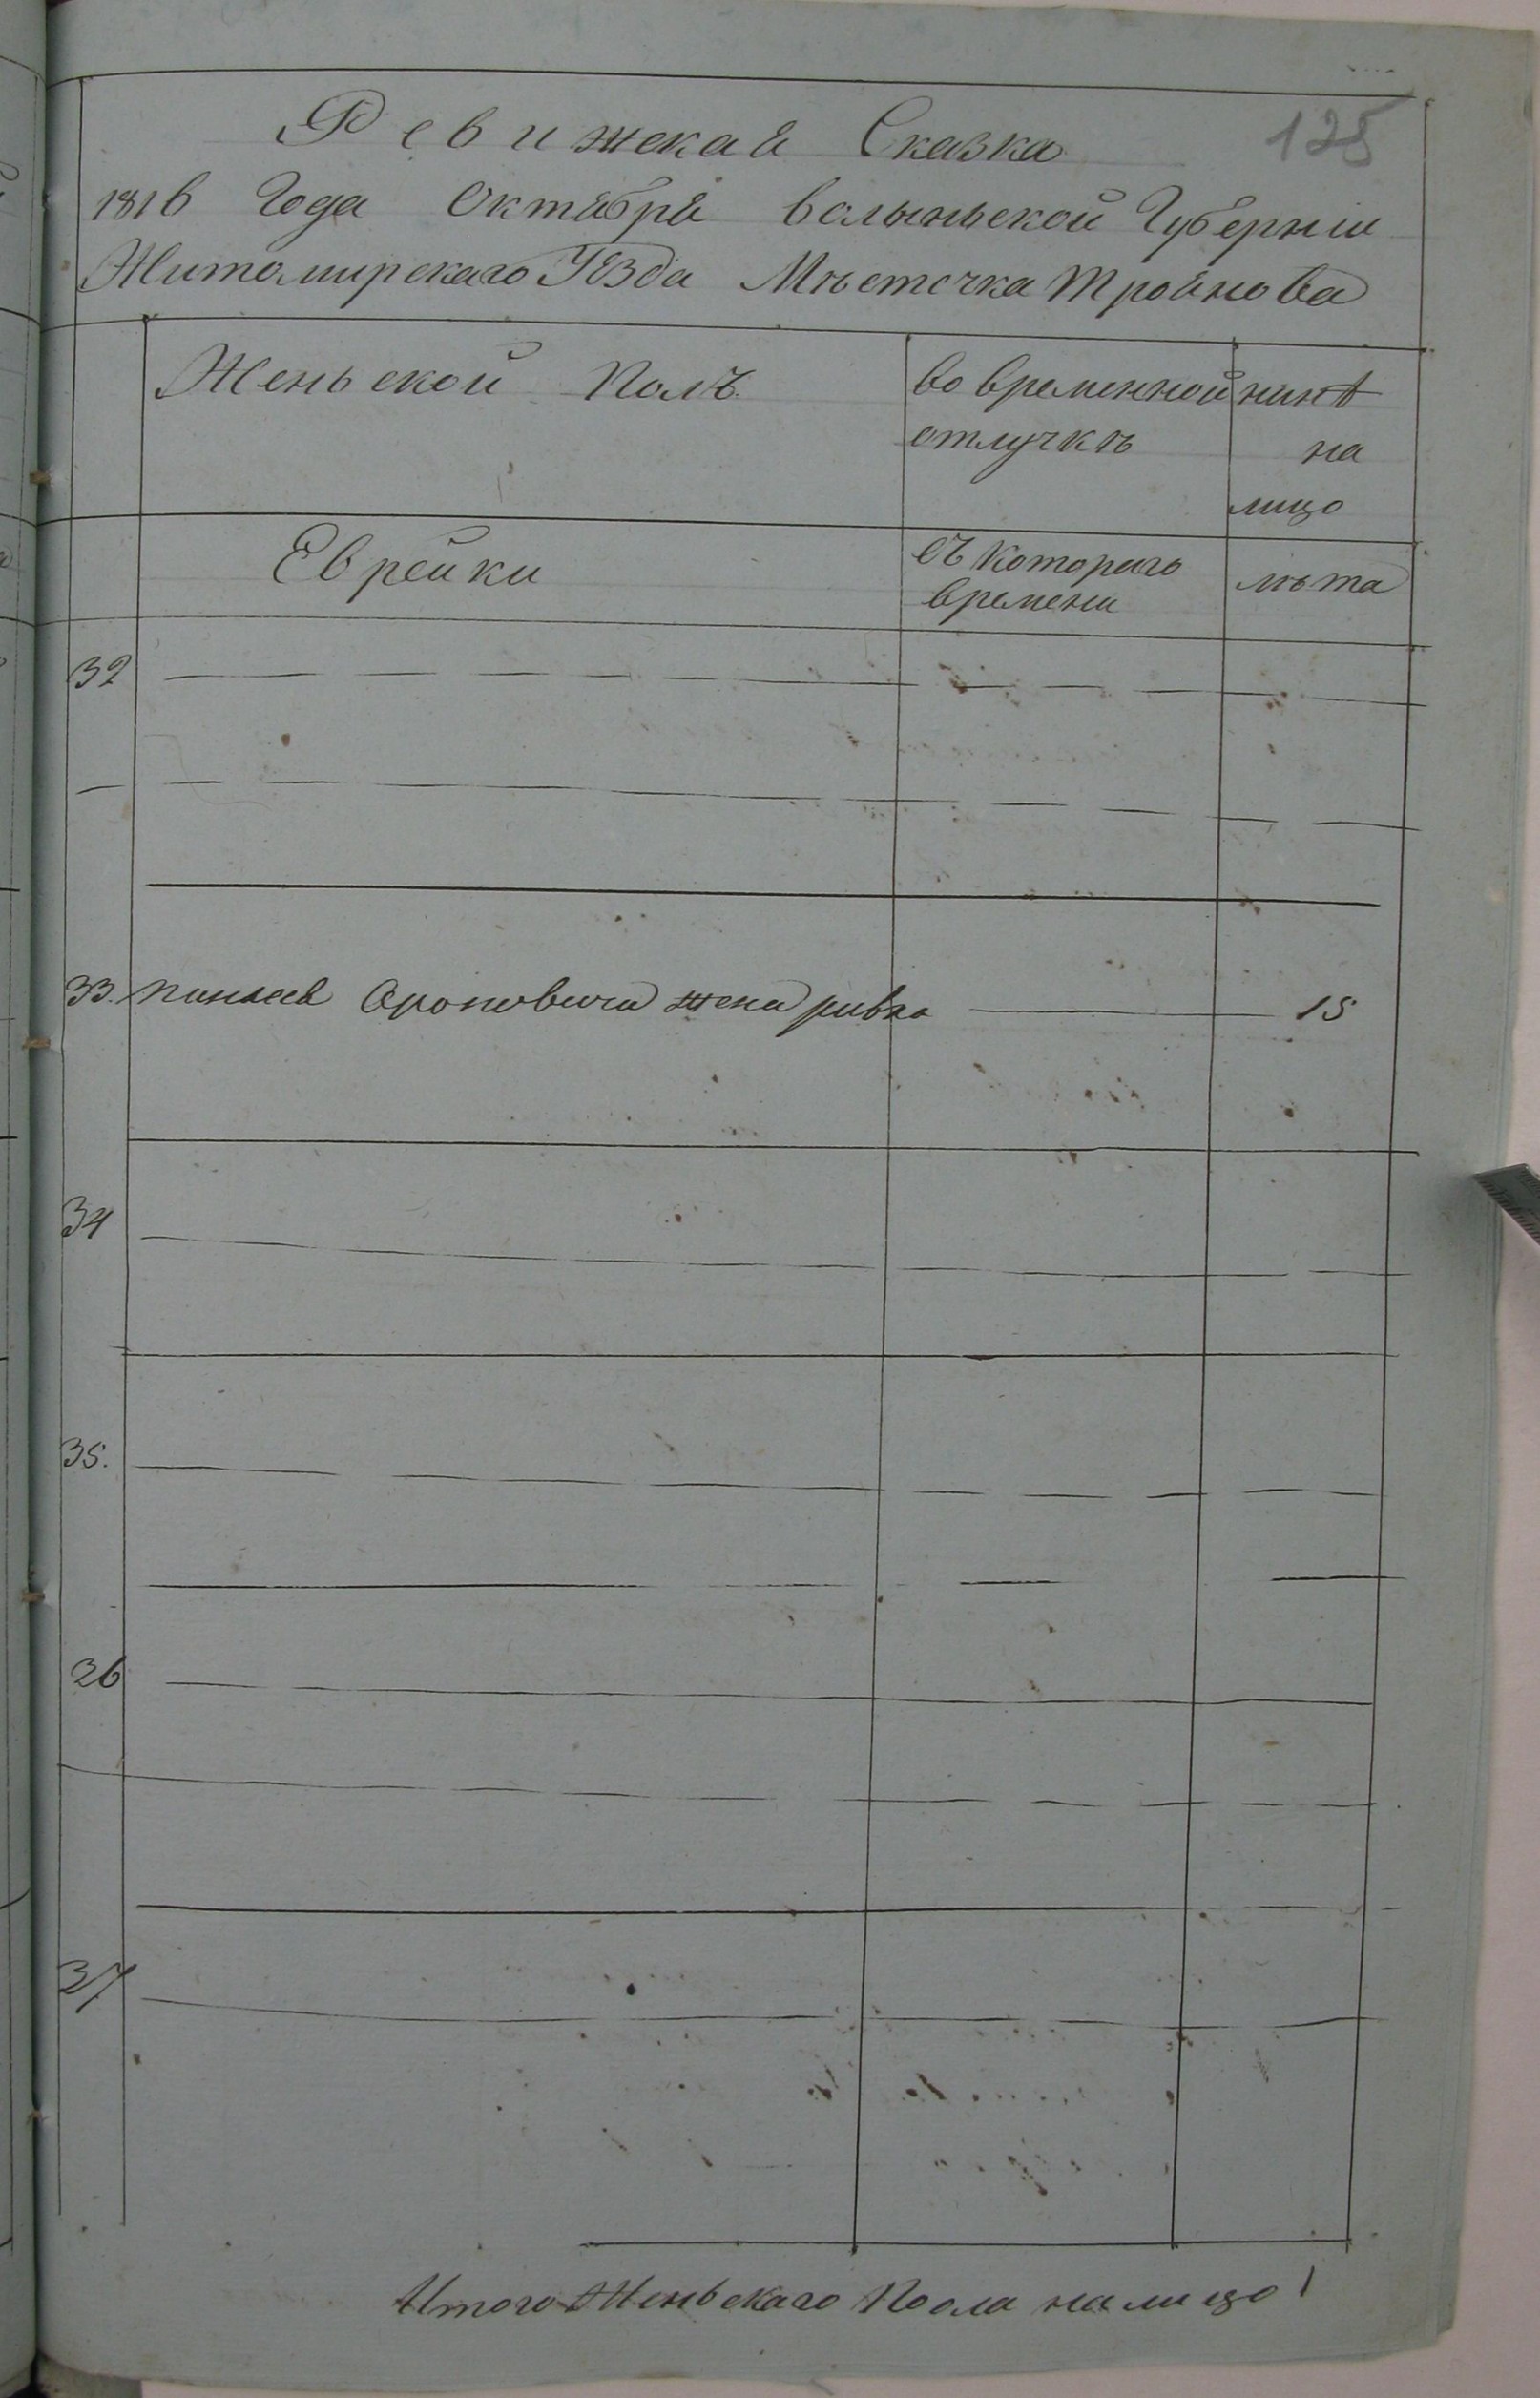 125
Ревижская Сказка
1816 Года Октября волыньской Губернiи
Житомирскаго Уѣзда Мѣстечка Троянова
Женьской Полъ
во временной отлучкѣ
нинѣ на лицо
Еврейки
съ котораго времени
лѣта
32
33. Ароновича жена ривка 15
34
35.
36
37
Итого Женьскаго Поола налицо 1